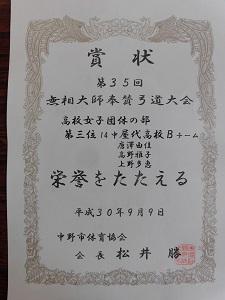 賞状
第35回
無相大師奉賛弓道大会
高校女子団体の部
第三位 14中 屋代高校Bチーム
唐澤由佳
高野雅子
上野多恵
栄誉をたたえる
平成30年9月9日
中野市体育協会
会長 松井 勝